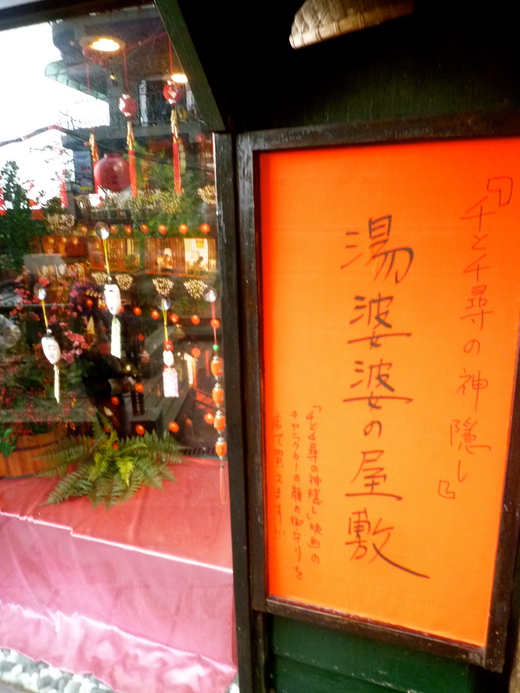 『千と千尋の神隠し』
湯婆婆の屋敷
「千と千尋の神隠し」映画の
キャラクターの顔の御守りを
店で買えます!!!